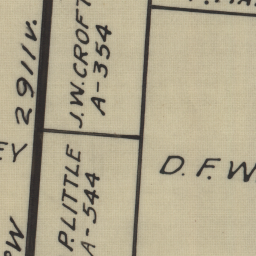 2911 v.
J.W. CROFT
A-354
EY
P. LITTLE
A-544
D. F. W